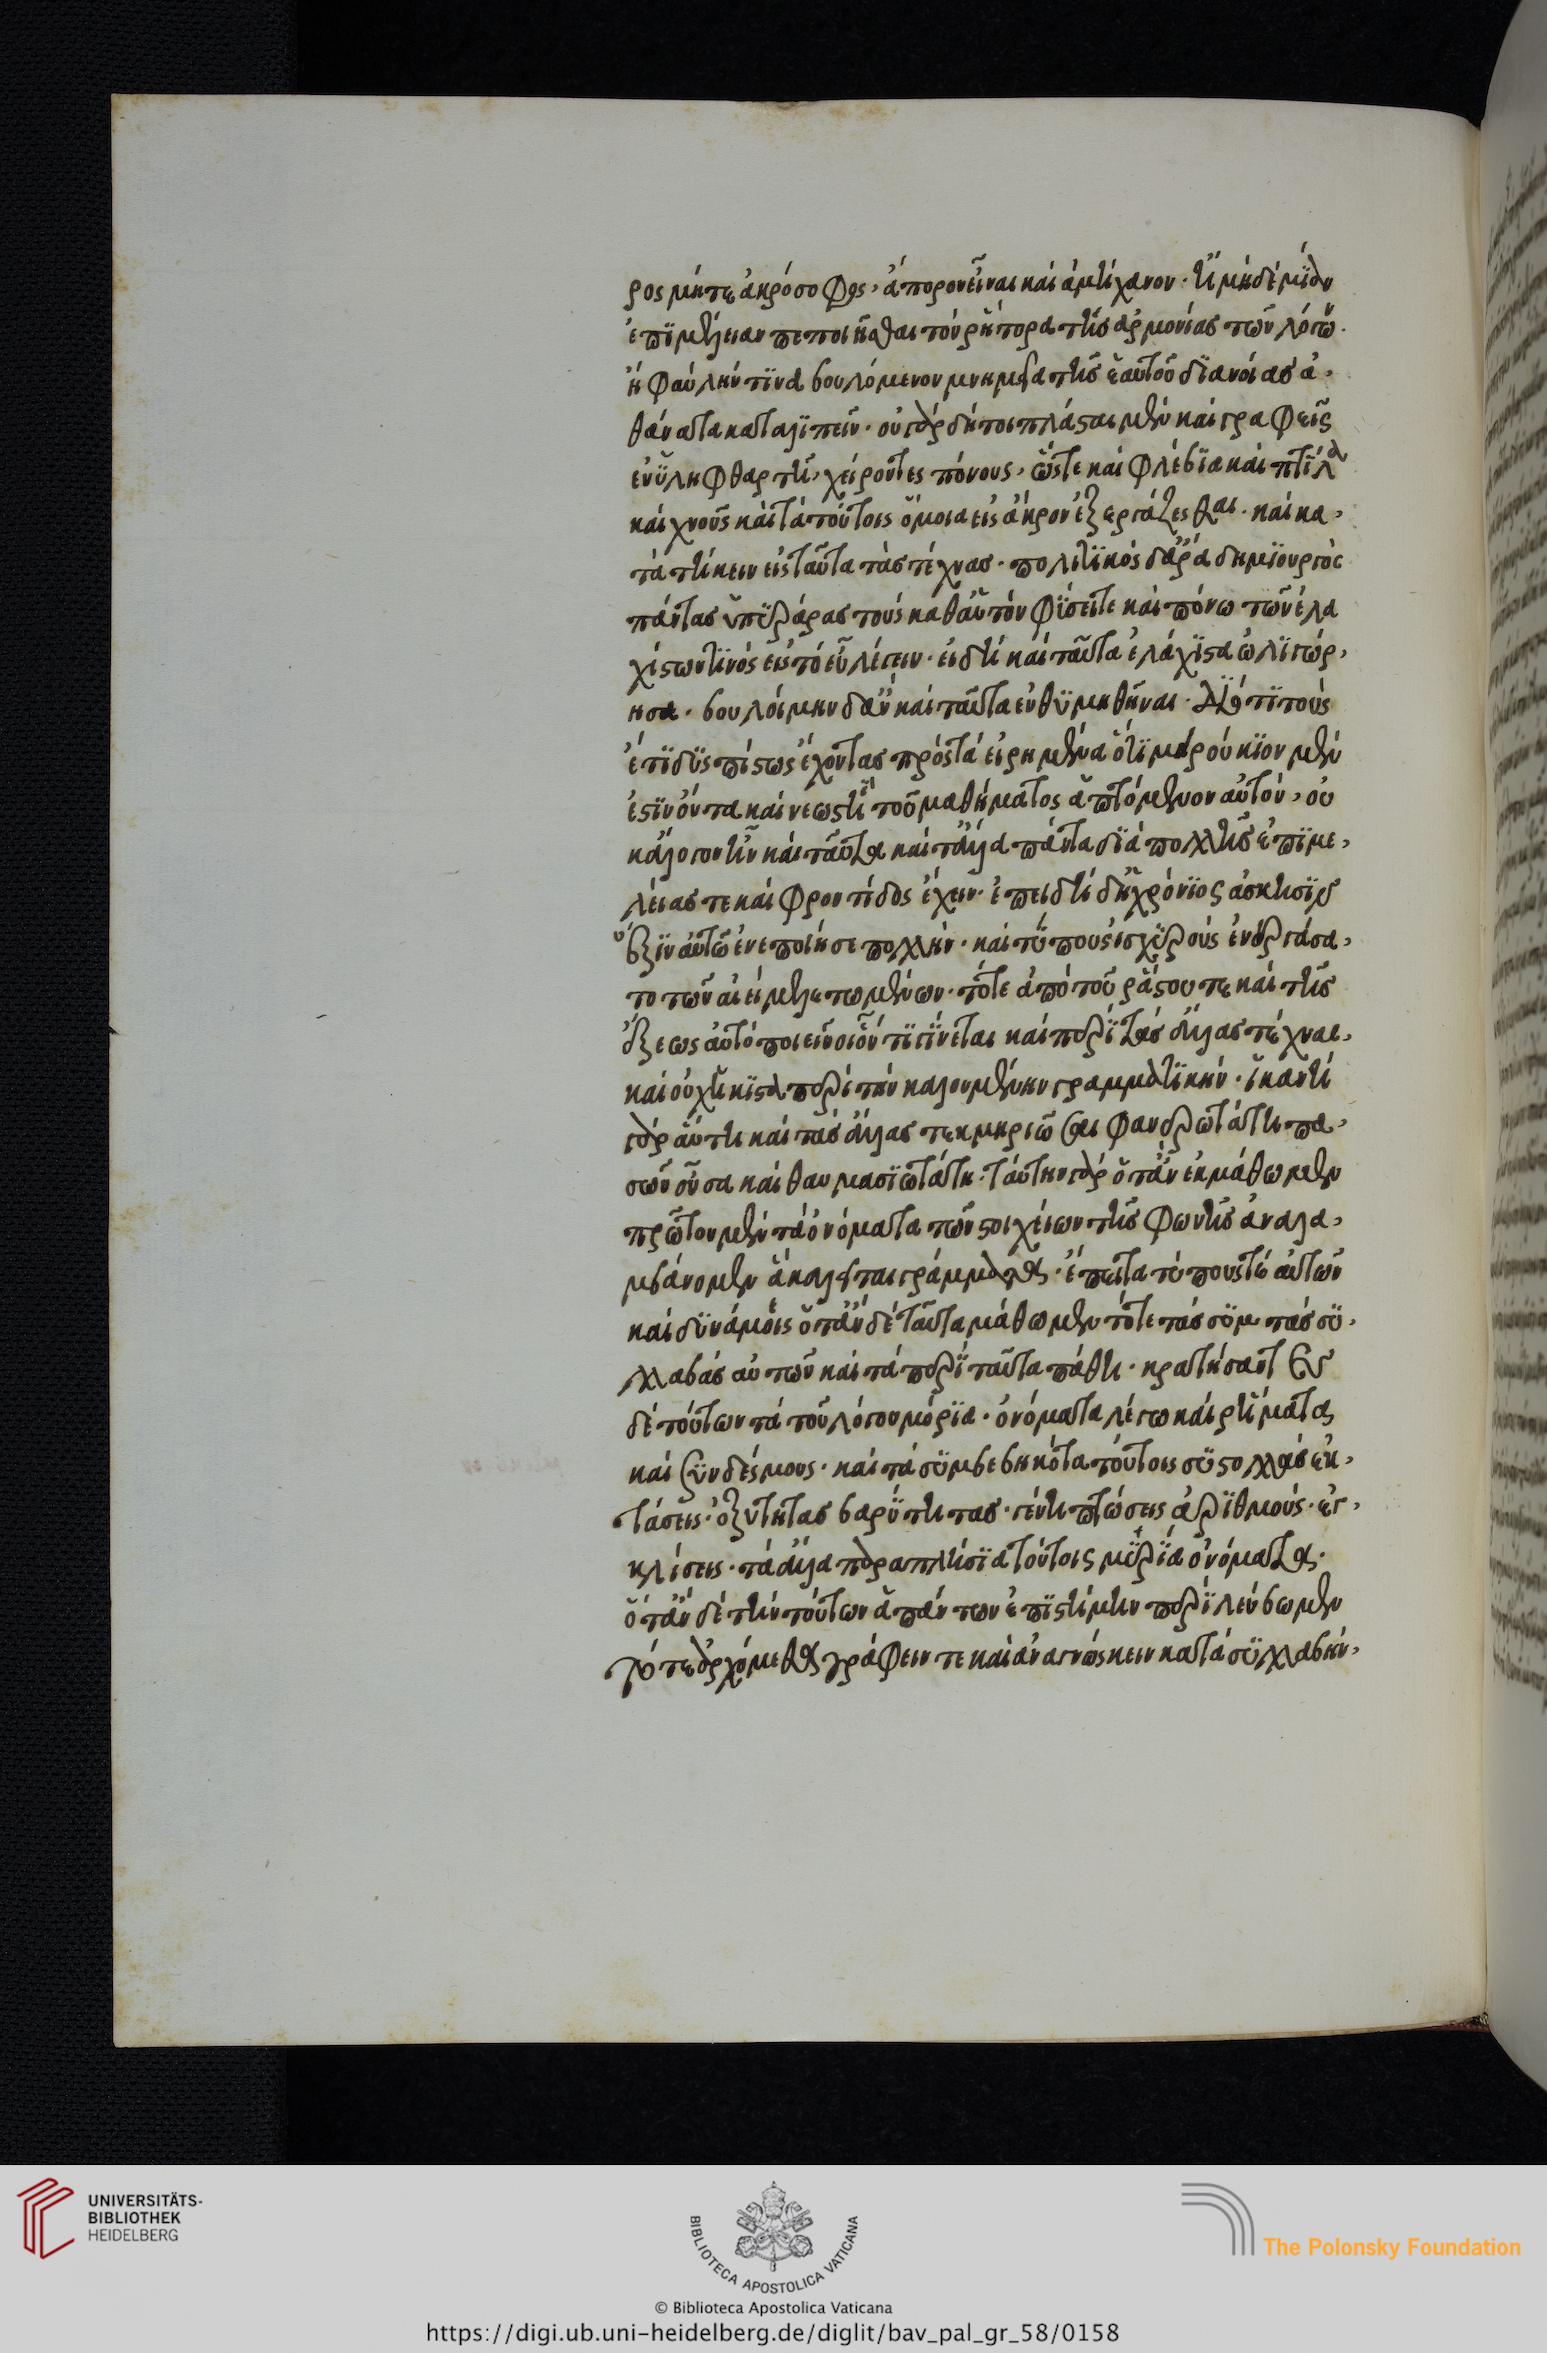 ρος μήτε ἀκρόσοφος, ἄπορον εἶναι καὶ ἀμήχανον· ἢ μὴδὲ μΐαν
ἐπϊμέλειαν πεποιῆσθαι τὸν ῥήτορα τῆς ἁρμονίας τῶν λόγων·
ἢ φαύλην τϊνὰ βουλόμενον μνημεῖα τῆς ἑαυτοῦ δϊανοίας ἀ-
θάνατα καταλϊπεῖν· οὐ γὰρ δήποι πλάσται μὲν καὶ γραφεῖς
ἐν ὕλη φθαρτῆ, χειροῦντες πόνους, ὥστε καὶ φλέβϊα καὶ πτΐλα
καὶ χνοῦς καὶ τὰ τούτοις ὅμοια εἰς ἄκρον ἐξεργάζεσθαι· καὶ κα-
τατήκειν εἰς ταῦτα τὰς τέχνας· πολιτϊκὸς δ' ἄρα δημϊουργὸς
πάντας ὑπεράρας τοὺς καθ' αὑτὸν φΰσει τε καὶ πόνω τῶν ἐλα
χίστων τϊνὸς εἰς τὸ εὖ λέγειν· εἰ δὴ καὶ ταῦτα ἐλάχϊστα ὠλϊγώρ-
ησα· βουλοίμην δ' ἂν καὶ ταῦτα ἐνθϋμηθῆναι· ἔτϊ τοὺς
ἔτϊ δϋσπίστως ἔχοντας πρὸς τὰ εἰρημένα ὅτϊ μειρούκϊον μὲν
ἔτϊ ὄντα καὶ νεωστὶ τοῦ μαθήματος ἁπτόμενον αὐτὸν, οὐ
κ' ἄλογον ἦν καὶ ταῦτα καὶ τἄλλα πάντα δϊὰ πολλῆς ἐπϊμε-
λείας τε καὶ φροντίδος ἔχειν· ἐπειδὴ δὴ χρόνϊος ἄσκησϊς
ἕξϊν αὐτῶ ἐνεποίησε πολλὴν· καὶ τΰπους ἰσχϋροὺς ἐνειργάσα-
το τῶν αἰεὶ μελετωμένων· τότε ἀπὸ τοῦ ῥάστου τε καὶ τῆς
ἕξεως αὐτὸ ποιεῖν οἷόν τϊ γΐνεται καὶ περὶ τὰς ἄλλας τέχνας,
καὶ οὐχ ἥκϊστα περὶ τὴν καλουμένην γραμματϊκὴν· ἱκανὴ
γὰρ αὕτη καὶ τὰς ἄλλας τεκμηριῶσαι φανερωτάτη πα-
σῶν οὖσα καὶ θαυμασϊωτάτη· ταύτην γὰρ ὅταν ἐκμάθωμεν
πρῶτον μὲν τὰ ὀνόματα τῶν στοιχείων τῆς φωνῆς ἀναλα-
μβάνομεν ἃ καλεῖται γράμματα· ἔπειτα τύπους τὲ αὐτῶν
καὶ δϋνάμεις ὅταν δὲ ταῦτα μάθωμεν τότε τὰς σϋμ τὰς σϋ-
λλαβὰς αὐτῶν καὶ τὰ περὶ ταῦτα πάθη· κρατήσαντες
δὲ τούτων τὰ τοῦ λόγου μόρϊα· ὀνόματα λέγω καὶ ῥήματα
καὶ σϋνδέσμους· καὶ τὰ σϋμβεβηκότα τούτοις σϋστολλὰς ἐκ-
τάσεις· ὀξύτητας βαρΰτητας· γένη πτώσεις ἀρϊθμοὺς· ἐγ-
κλίσεις· τὰ ἄλλα παραπλήσϊα τούτοις μϋρΐα ὀνόματα·
ὅταν δὲ τὴν τούτων ἁπάντων ἐπϊστήμην περϊλεύβωμεν
τότε ἀρχόμεθα γράφειν τε καὶ ἀναγνώσκειν κατὰ σϋλλαβὴν,
UNIVERSITÄTS-
BIBLIOTHEK
HEIDELBERG
BIBLIOTECA APOSTOLICA VATICANA
The Polonsky Foundation
© Biblioteca Apostolica Vaticana
https://digi.ub.uni-heidelberg.de/diglit/bav_pal_gr_58/0158